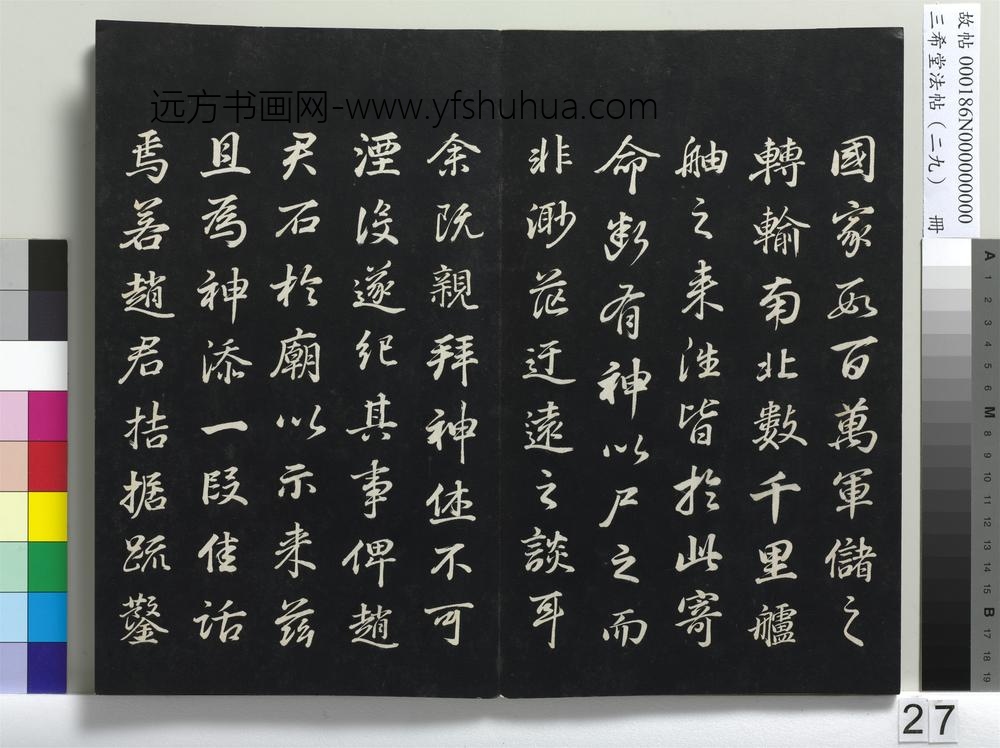 國家數百萬軍儲之
轉輸南北數千里艫
舳之来往皆於此寄
命斷有神以尸之而
非渺茫迂遠之談耳
余既親拜神休不可
湮没遂紀其事俾趙
君石於廟以示来茲
且為神添一段佳話
焉若趙君拮据疏鑿
远方书画网-www.yfshuhua.com
故帖 000186N000000000
三希堂法帖(二九) 冊
A 1 2 3 4 5 6 M 8 9 10 11 12 13 14 15 B 17 18 19
27